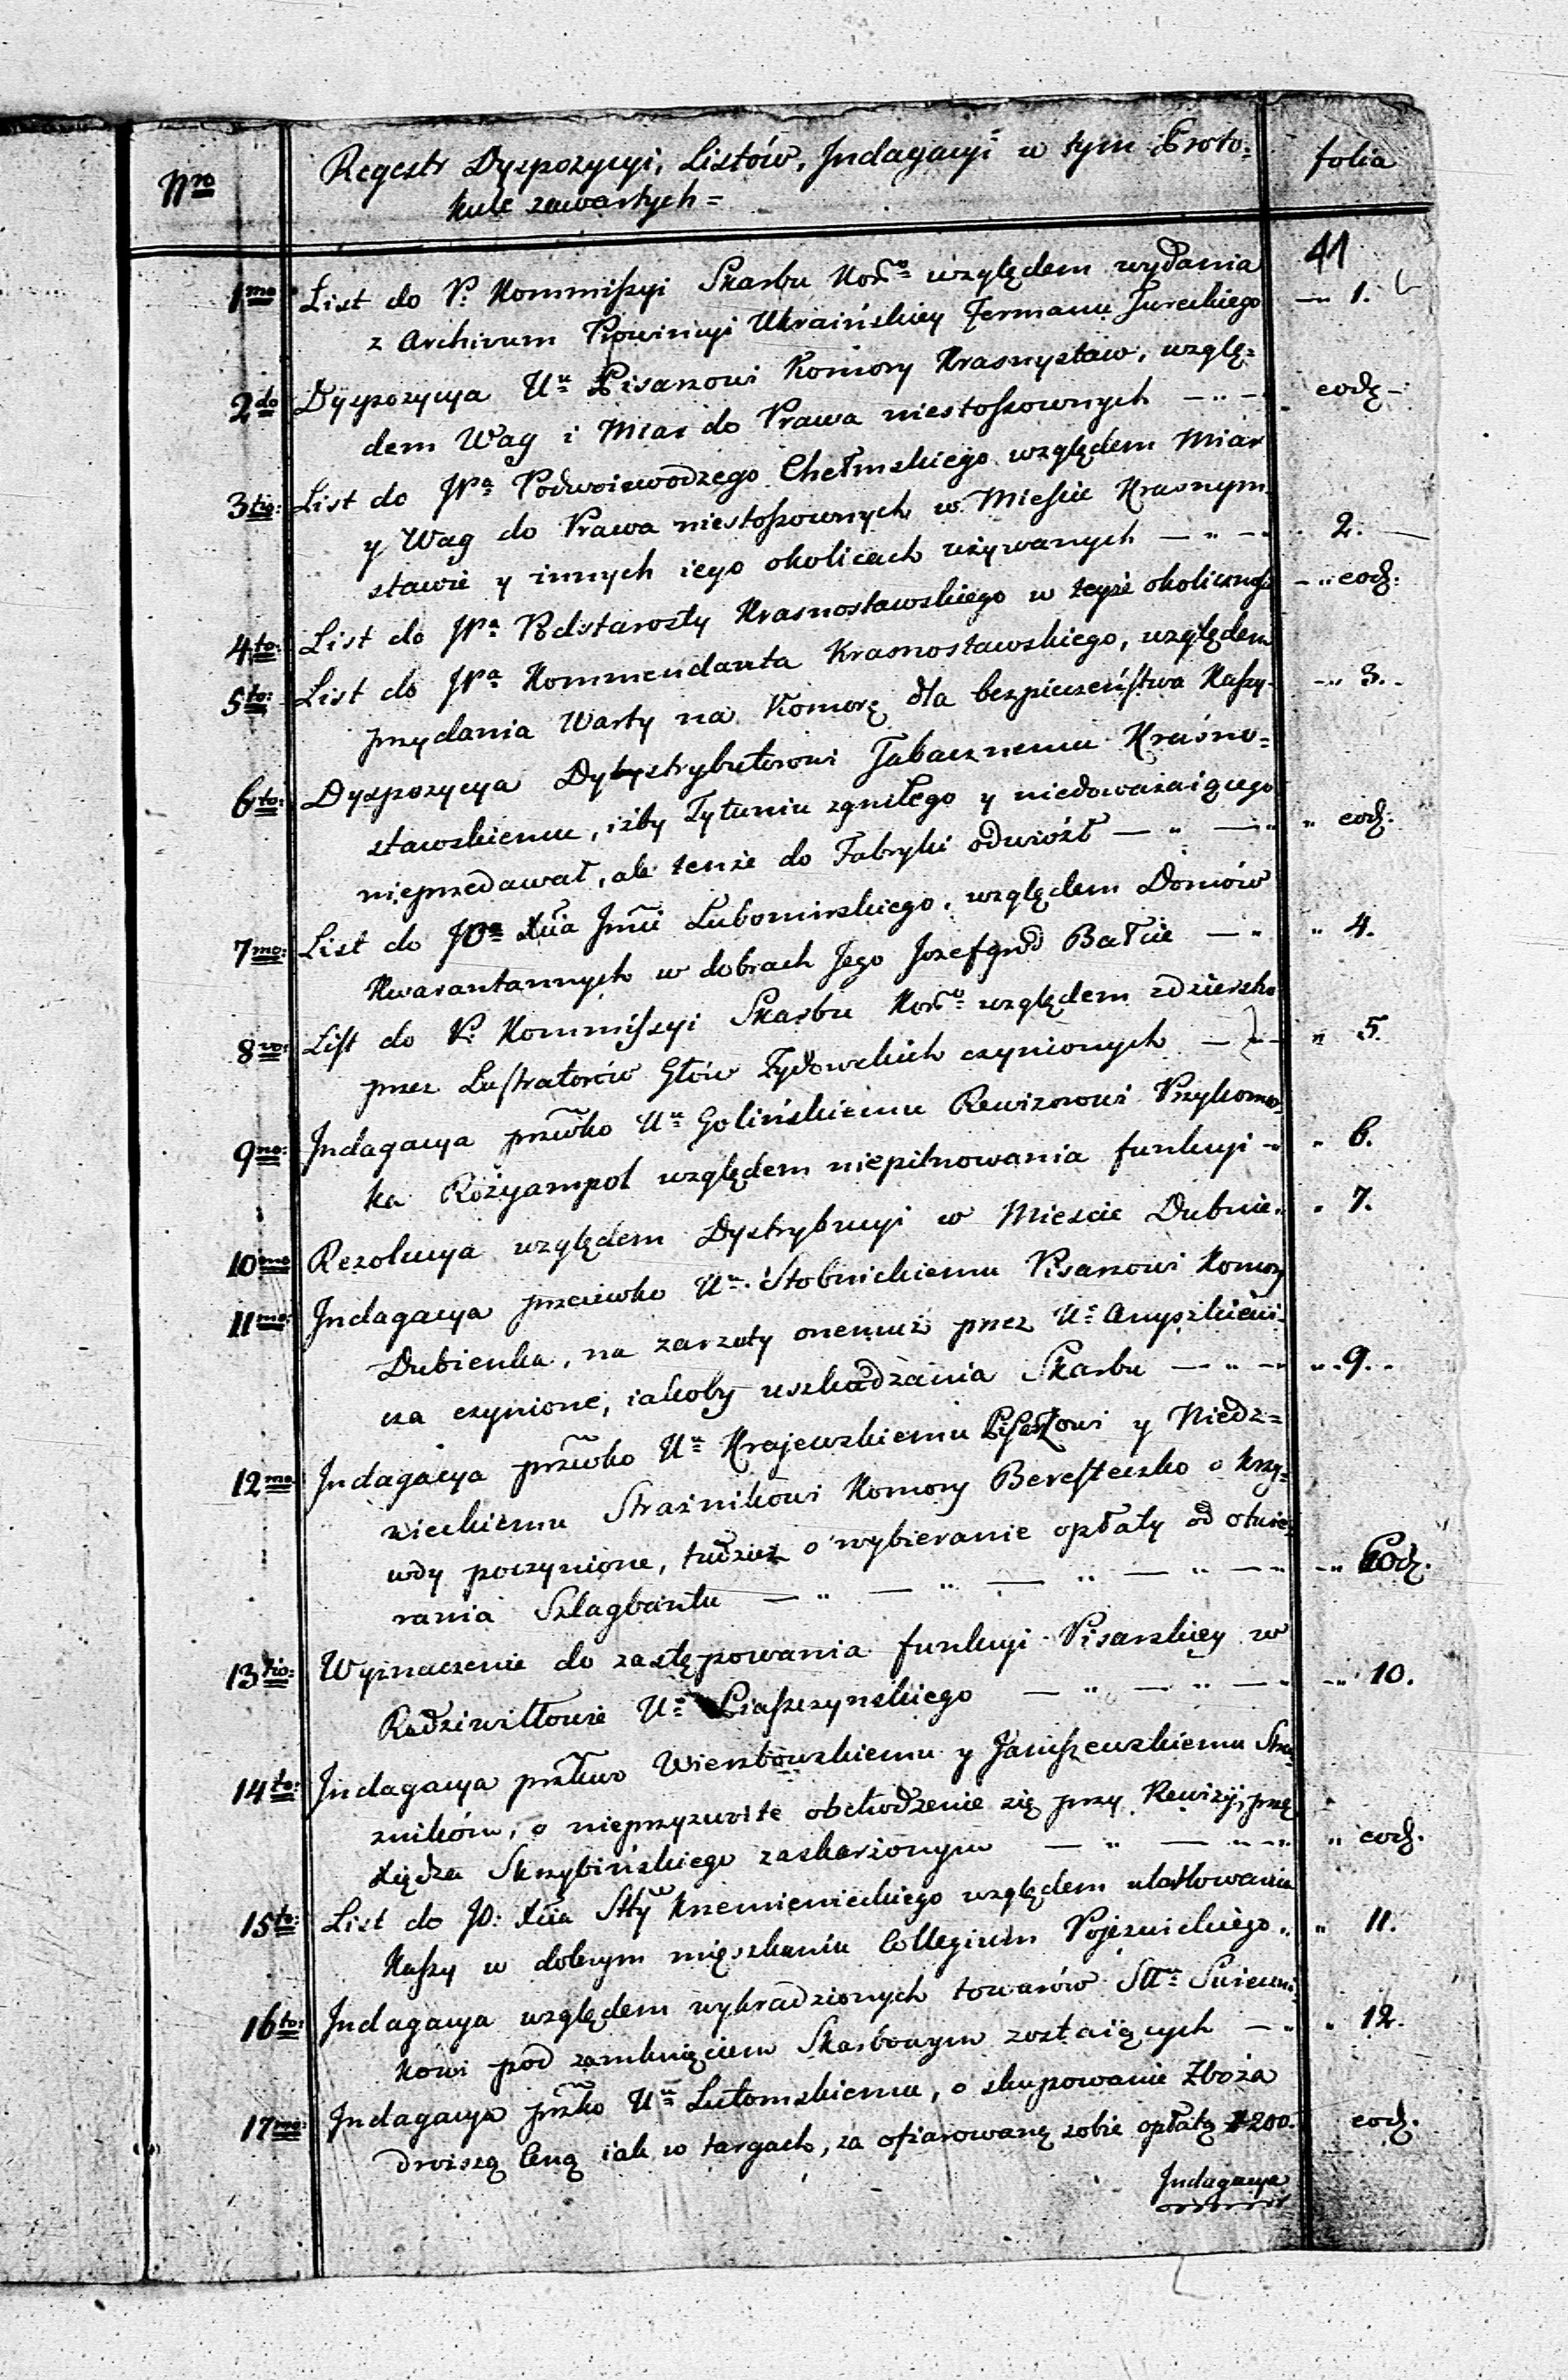 Nro Regestr Dyspozycyi, Listów, Indagacyi w tym Proto= folia
kule zawartych =
41
1mo List do P. Kommissyi Skarbu Kor. względem wydania — 1.
z Archivum Prowincyi Ukraińskiey Fermanu Tureckiego
2do Dyspozycya Uu Pisarzowi Komory Krasnystaw, wzglę= eod. —
dem Wag i Miar do Prawa niestosownych — " —
3tio: List do JWa Podwoiewodzego Chełmskiego względem Miar
y Wag do Prawa niestosownych w Mieście Krasnym
stawie y innych iego okolicach używanych — " — 2. —
4to: List do JWa Podstarosty Krasnostawskiego w teyże okoliczności — " eod.
5to: List do JWa Kommendanta Krasnostawskiego, względem
przydania Warty na Komorę dla bezpieczeństwa Kassy — " 3. -
6to: Dyspozycya Dystrybutorowi Tabacznemu Kraśno=
stawskiemu, iżby Tytuniu zgniłego y niedoważaiącego
nieprzedawał, ale tenże do Fabryki odwiózł — " — " " eod:
7mo: List do JOa Xcia Jmci Lubomirskiego, względem Domów
Kwarantannych w dobrach Jego Jozefgrod Bałcie — " " 4.
8vo: List do P. Kommissyi Skarbu Kor. względem zdzierstw
przez Lustratorów Głów Żydowskich czynionych — " — " 5.
9no: Indagacya przwko Uu Golińskiemu Rewizorowi Przykomor
ka Rożyampol względem niepilnowania funkcyi — " " 6.
10mo Rezolucya względem Dystrybucyi w Mieście Dubnie. " 7.
11mo: Indagacya przeciwko Uu Stobnickiemu Pisarzowi Komory
Dubienka, na zarzuty onemuż przez Uo Anyszkiewi=
cza czynione, iakoby uszkadzania Skarbu — " — " 9. -
12mo: Indagacya przwko Uu Krajewskiemu Pisarzowi y Niedz=
wieckiemu Strażnikowi Komory Beresteczko o krzy=
wdy poczynione, tudzież o wybieranie opłaty od otwie=
rania Szlagbantu — " — " — " — " — " — " Eod.
13tio: Wyznaczenie do zastępowania funkcyi Pisarskiey w
Radziwiłłowie Uo Piaszczynskiego — " — " — " — " 10.
14to: Indagacya przwko Wierzbowskiemu y Januszewskiemu Stra=
znikóm, o nieprzyzwoite obchodzenie się przy Rewizyi, przez
Xiędza Skrzybińskiego zaskarżonym — " — " — " " eod.
15to: List do JO: Xcia Stty Krzemienieckiego względem ulokowania
Kassy w dolnym mięszkaniu Collegium Pojezuickiego. " 11.
16to: Indagacya względem wykradzionych towarów Stu
kowi pod zamknięciem Skarbowym zostaiących — " " 12.
17mo: Indagacya przko Uu Lutomskiemu, o skupowanie Zboża
drożsżą Ceną iak w targach, za ofiarowaną sobie opłatę # 200. eod.
Indagacya